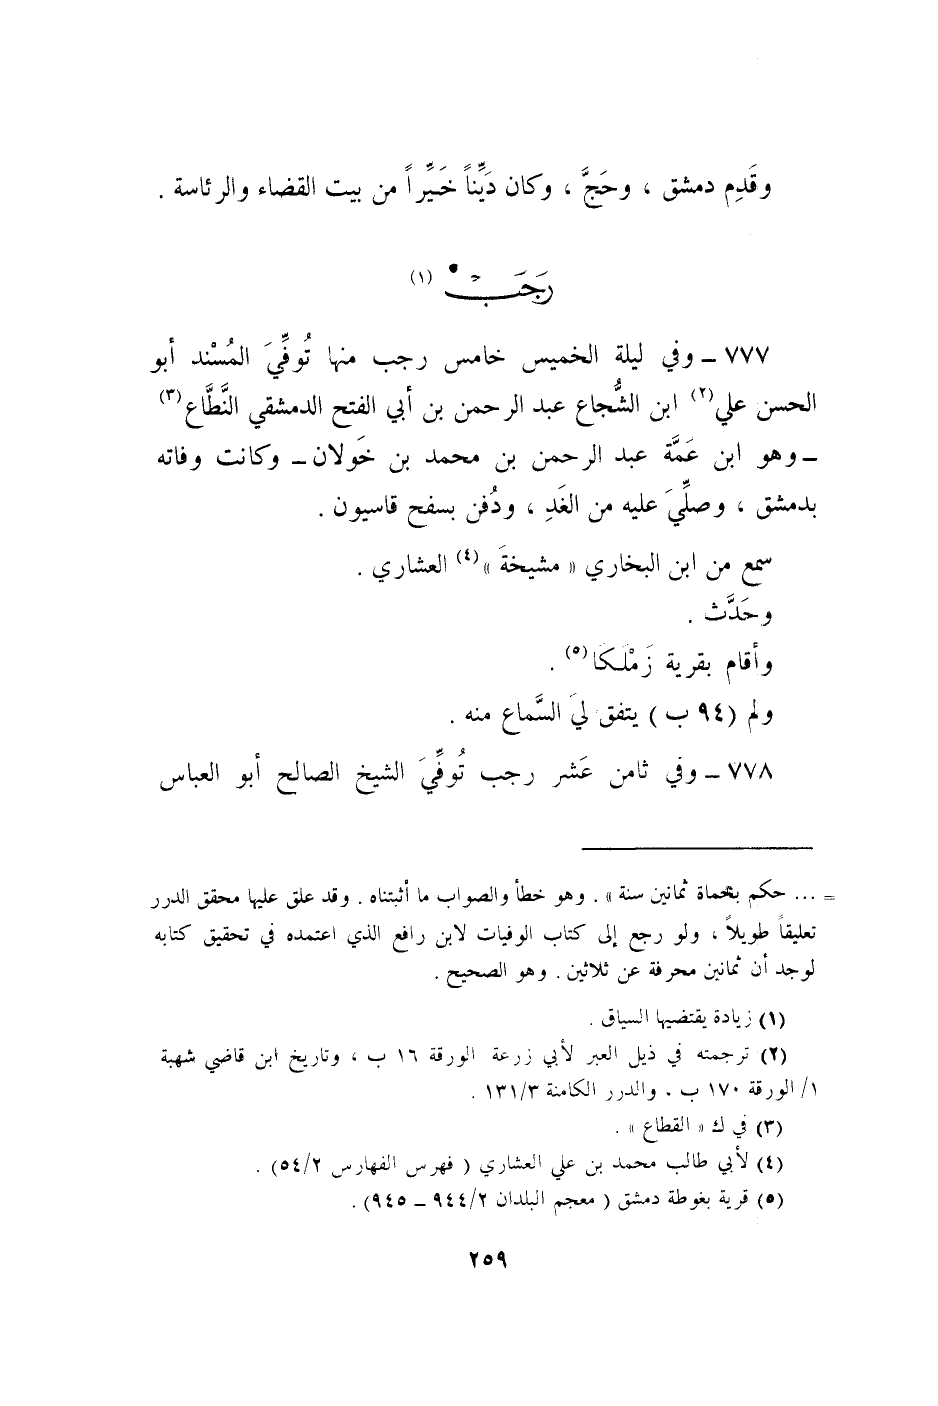 وقَدِم دمشق ، وحَجَّ ، وكان دَيِّناً خَيِّراً من بيت القضاء والرئاسة .
رَجَب (١)
٧٧٧ ــ وفي ليلة الخميس خامس رجب منها تُوفِّيَ المُسْند أبو
الحسن علي(٢) ابن الشُّجاع عبد الرحمن بن أبي الفتح الدمشقي النَّطَّاع(٣)
ــ وهو ابن عَمَّة عبد الرحمن بن محمد بن خَولان ــ وكانت وفاته
بدمشق ، وصلِّيَ عليه من الغَدِ ، ودُفن بسفح قاسيون .
سمع من ابن البخاري « مشيخةَ »(٤) العشاري .
وحَدَّث .
وأقام بقرية زَمْلَكَا(٥) .
ولم (٩٤ ب ) يتفق ليَ السَّماع منه .
٧٧٨ ــ وفي ثامن عَشر رجب تُوفِّيَ الشيخ الصالح أبو العباس
= ... حكم بحماة ثمانين سنة » . وهو خطأ والصواب ما أثبتناه . وقد علق عليها محقق الدرر
تعليقاً طويلاً ، ولو رجع إلى كتاب الوفيات لابن رافع الذي اعتمده في تحقيق كتابه
لوجد أن ثمانين محرفة عن ثلاثين . وهو الصحيح .
(١) زيادة يقتضيها السياق .
(٢) ترجمته في ذيل العبر لأبي زرعة الورقة ١٦ ب ، وتاريخ ابن قاضي شهبة
١/ الورقة ١٧٠ ب . والدرر الكامنة ١٣١/٣ .
(٣) في ك « القطاع » .
(٤) لأبي طالب محمد بن علي العشاري ( فهرس الفهارس ٥٤/٢) .
(٥) قرية بغوطة دمشق ( معجم البلدان ٩٤٤/٢ ــ ٩٤٥) .
٢٥٩